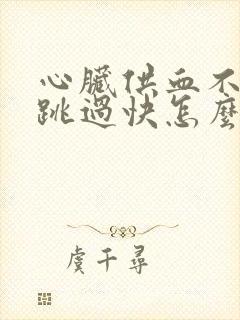 心臟供血不
跳過快怎麼
虞千尋